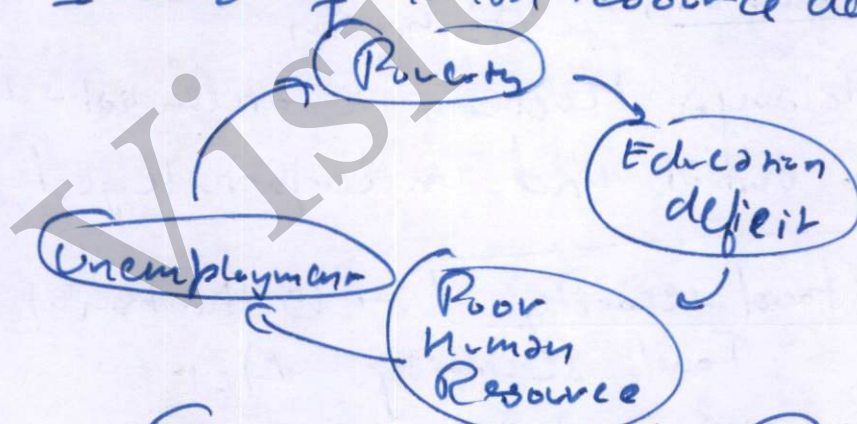 resource de
Poverty
Education
deficit
Poor
Human
Resource
Unemployment
Visi